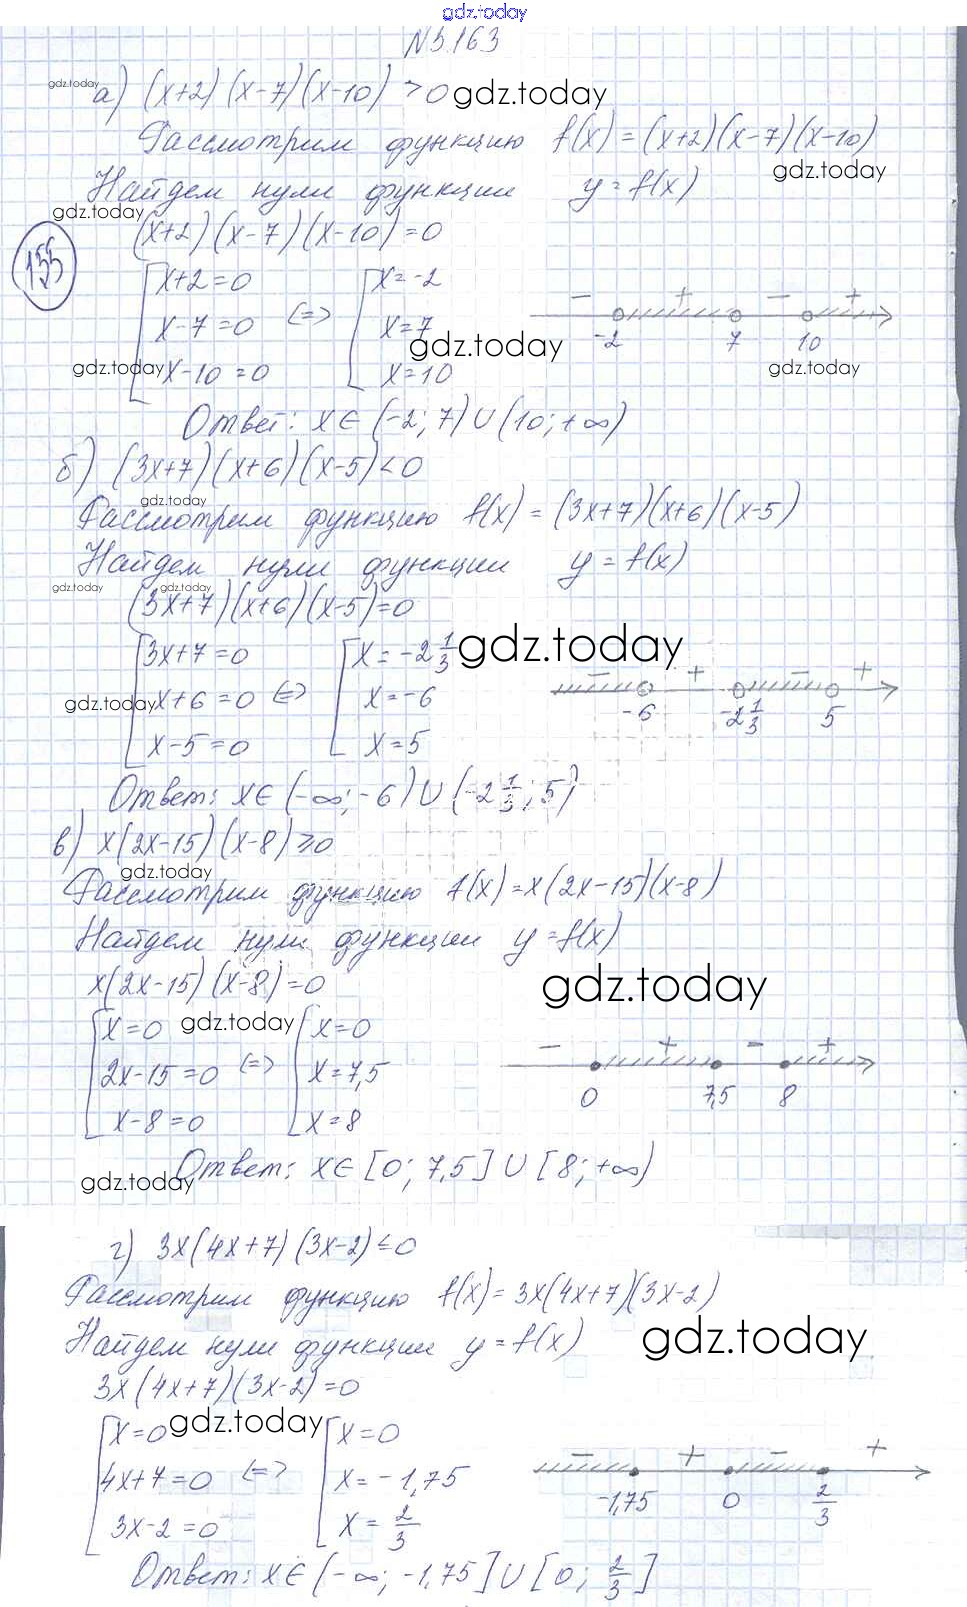 gdz.today
N 5.163
gdz.today
а) (x+2)(x-7)(x-10) > 0 gdz.today
Рассмотрим функцию f(x) = (x+2)(x-7)(x-10)
gdz.today
Найдем нули функции y = f(x)
gdz.today
(x+2)(x-7)(x-10) = 0
155
x+2=0 x=-2
− + − +
x-7=0 <=> x=7
-2 7 10
gdz.today gdz.today gdz.today
x-10=0 x=10
Ответ: x∈(-2; 7)∪(10; +∞)
б) (3x+7)(x+6)(x-5) < 0
gdz.today
Рассмотрим функцию f(x) = (3x+7)(x+6)(x-5)
Найдем нули функции y = f(x)
gdz.today gdz.today
(3x+7)(x+6)(x-5)=0
3x+7=0 x=-2 1/3 gdz.today
− + − +
gdz.today
x+6=0 <=> x=-6
-6 -2 1/3 5
x-5=0 x=5
Ответ: x∈(-∞; -6)∪(-2 1/3; 5)
в) x(2x-15)(x-8) ≥ 0
gdz.today
Рассмотрим функцию f(x)=x(2x-15)(x-8)
Найдем нули функции y=f(x)
x(2x-15)(x-8)=0 gdz.today
x=0 gdz.today x=0
− + − +
2x-15=0 <=> x=7,5
0 7,5 8
x-8=0 x=8
Ответ: x∈[0; 7,5]∪[8; +∞)
gdz.today
г) 3x(4x+7)(3x-2) ≤ 0
Рассмотрим функцию f(x)=3x(4x+7)(3x-2)
Найдем нули функции y=f(x) gdz.today
3x(4x+7)(3x-2)=0
x=0 gdz.today x=0
− + − +
4x+7=0 <=> x=-1,75
-1,75 0 2/3
3x-2=0 x=2/3
Ответ: x∈(-∞; -1,75]∪[0; 2/3]